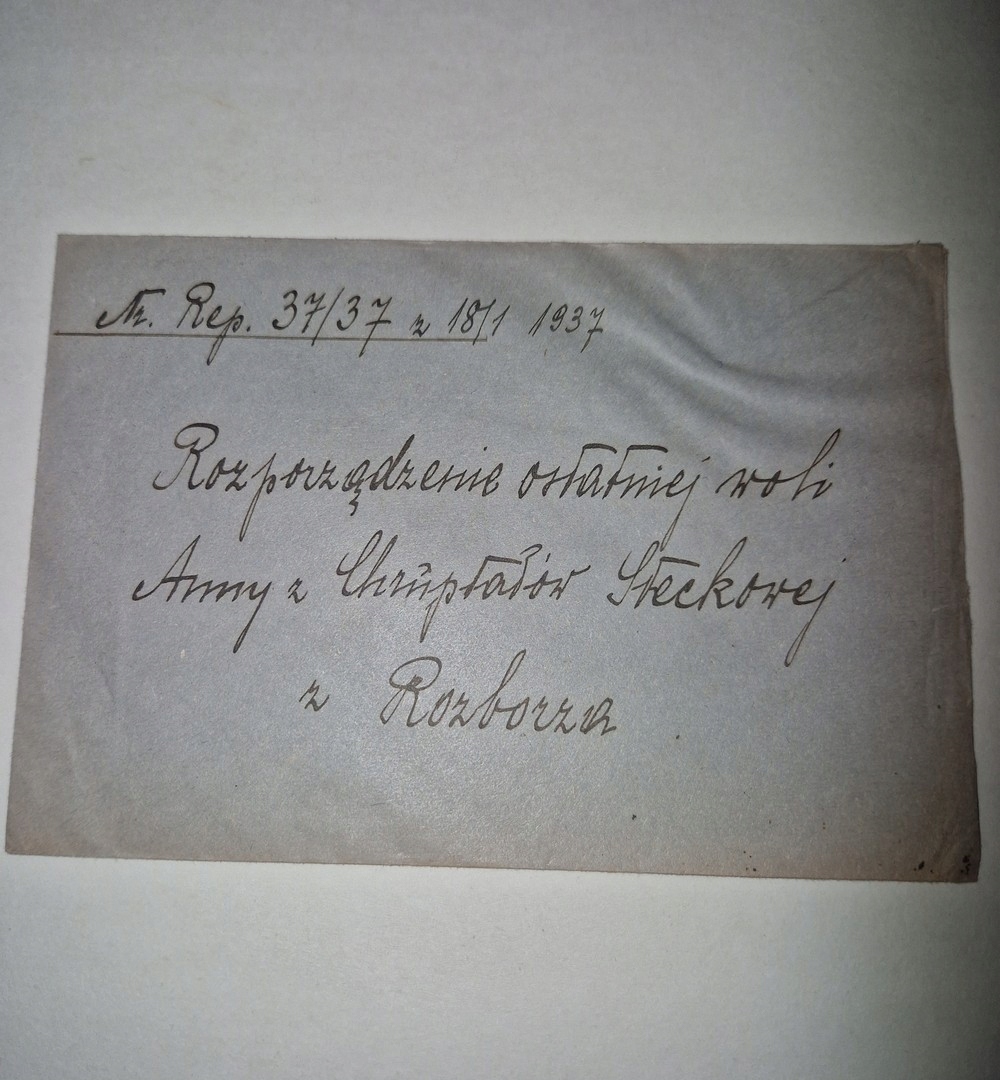 Nr. Rep. 37/37 z 18/1 1937
Rozporządzenie ostatniej woli
Anny z Chrupłałów Steckowej
z Rozborza